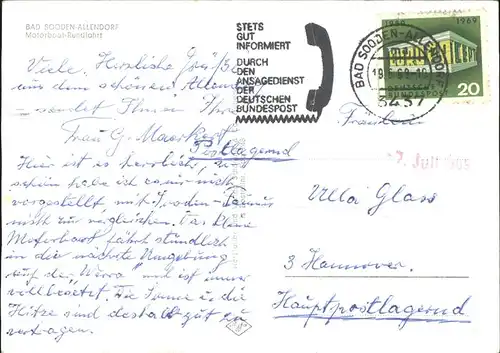 BAD SOODEN-ALLENDORF
Motorboot-Rundfahrt
STETS
GUT
INFORMIERT
DURCH
DEN
ANSAGEDIENST
DER
DEUTSCHEN
BUNDESPOST
BAD SOODEN-ALLENDORF
3437
1969
DEUTSCHE
BUNDESPOST
20
Viele Herzliche Grüße
aus dem schönen
sendet Ihnen Ihre
Frau G.
Postlagernd
Hier ist es herrlich, so
schön habe ich es mir nicht
vorgestellt mit
nicht zu vergleichen. Das kleine
Motorboot fährt stündlich
in die nächste Umgebung
auf der Werra und ist immer
vollbesetzt. Die Sonne u. die
Hitze sind deshalb gut zu
vertragen.
Fräulein
Ulla Glass
3 Hannover.
Hauptpostlagernd